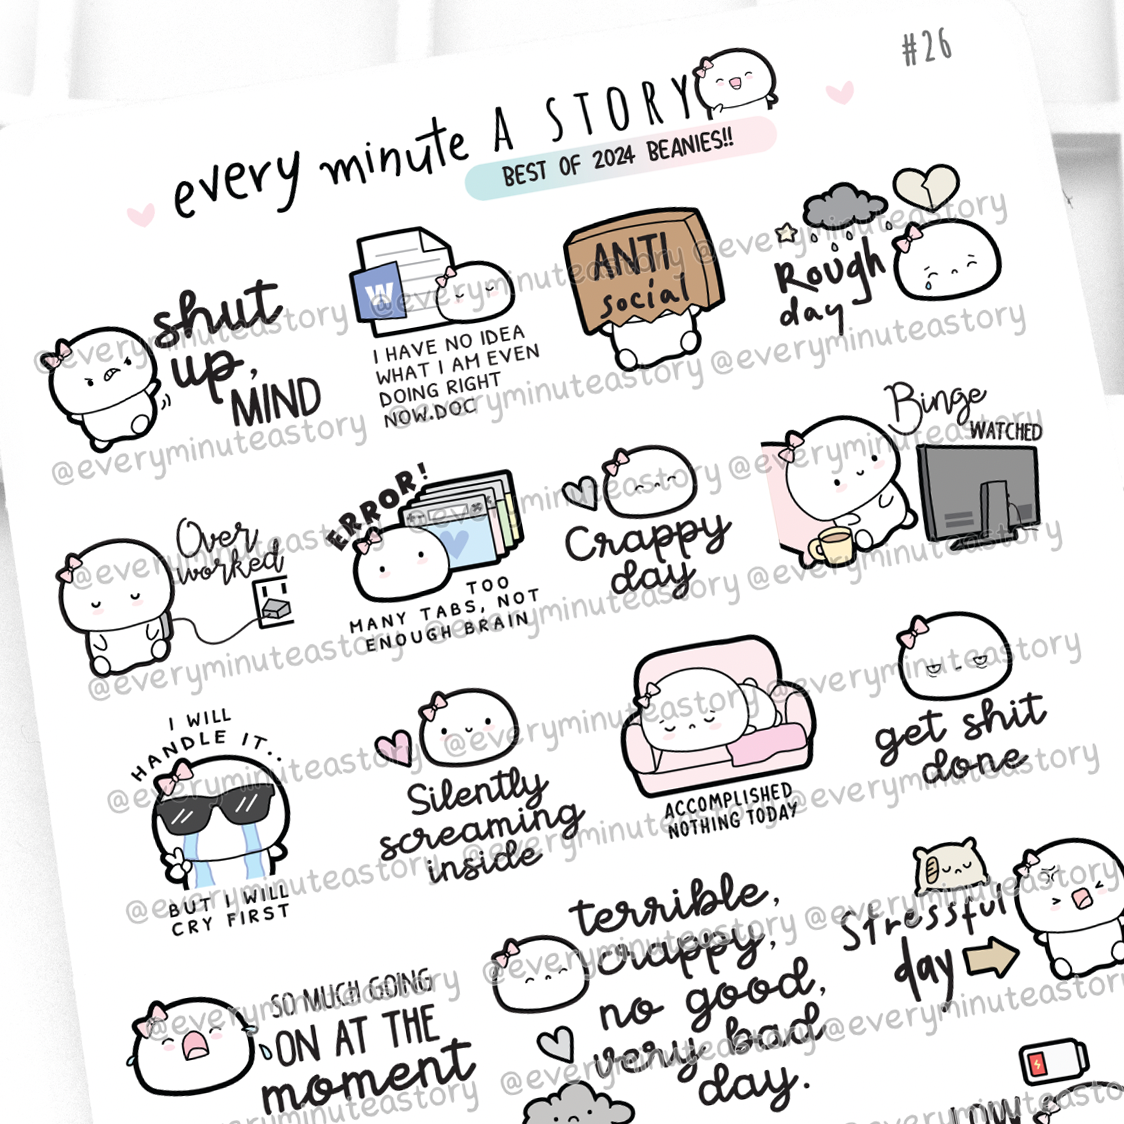 #26
every minute A STORY
BEST OF 2024 BEANIES!!
shut
up,
MIND
W
I HAVE NO IDEA
WHAT I AM EVEN
DOING RIGHT
NOW.DOC
ANTI
social
Rough
day
Over
worked
ERROR!
TOO
MANY TABS, NOT
ENOUGH BRAIN
Crappy
day
Binge
WATCHED
I WILL
HANDLE IT..
BUT I WILL
CRY FIRST
Silently
screaming
inside
ACCOMPLISHED
NOTHING TODAY
get shit
done
SO MUCH GOING
ON AT THE
moment
terrible,
crappy,
no good,
very bad
day.
Stressful
day
LOW
@everyminuteastory